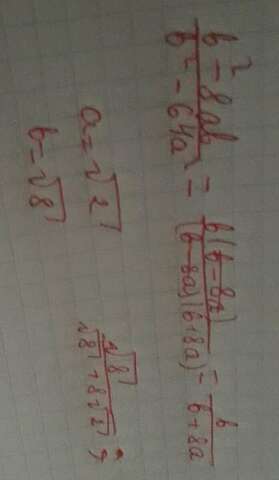 b² - 8ab / b² - 64a² = b(b-8a) / (b-8a)(b+8a) = b / b+8a
a = √2
b - √8
√8 / √8 + 8√2 ;